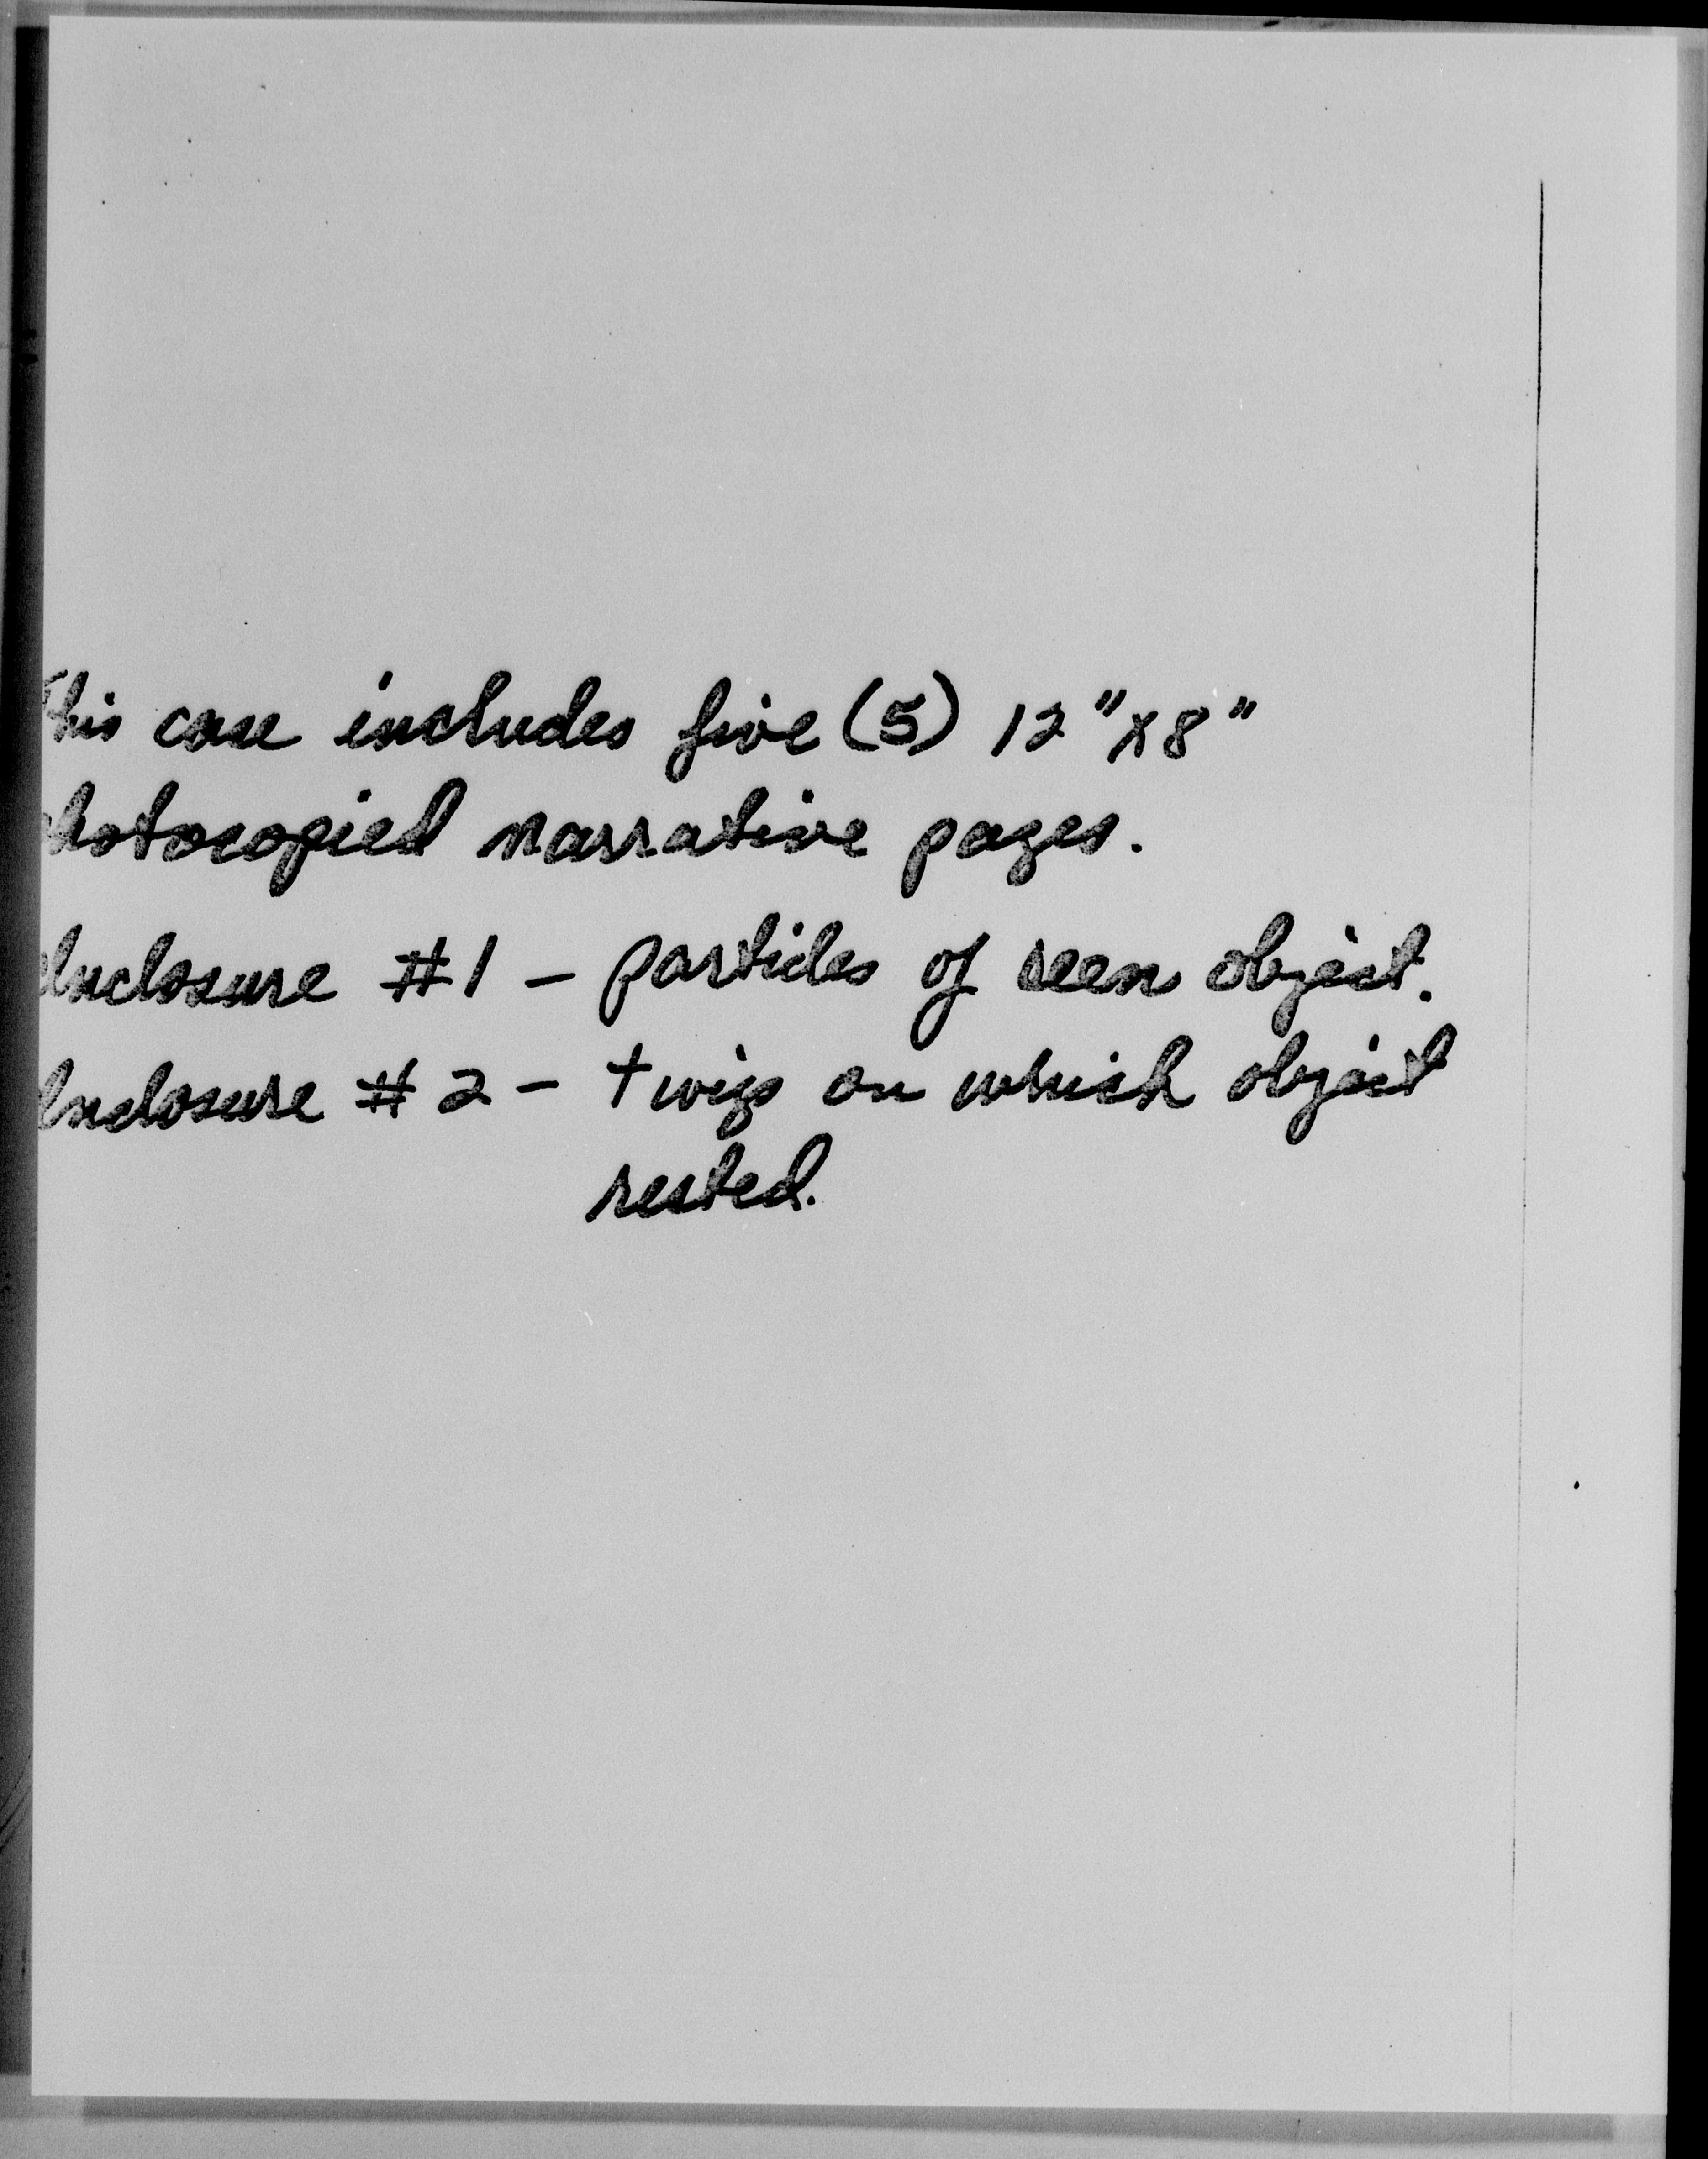 This case includes five (5) 12"x8"
photocopied narrative pages.
Enclosure #1 - particles of seen object.
Enclosure #2 - twigs on which object
rested.